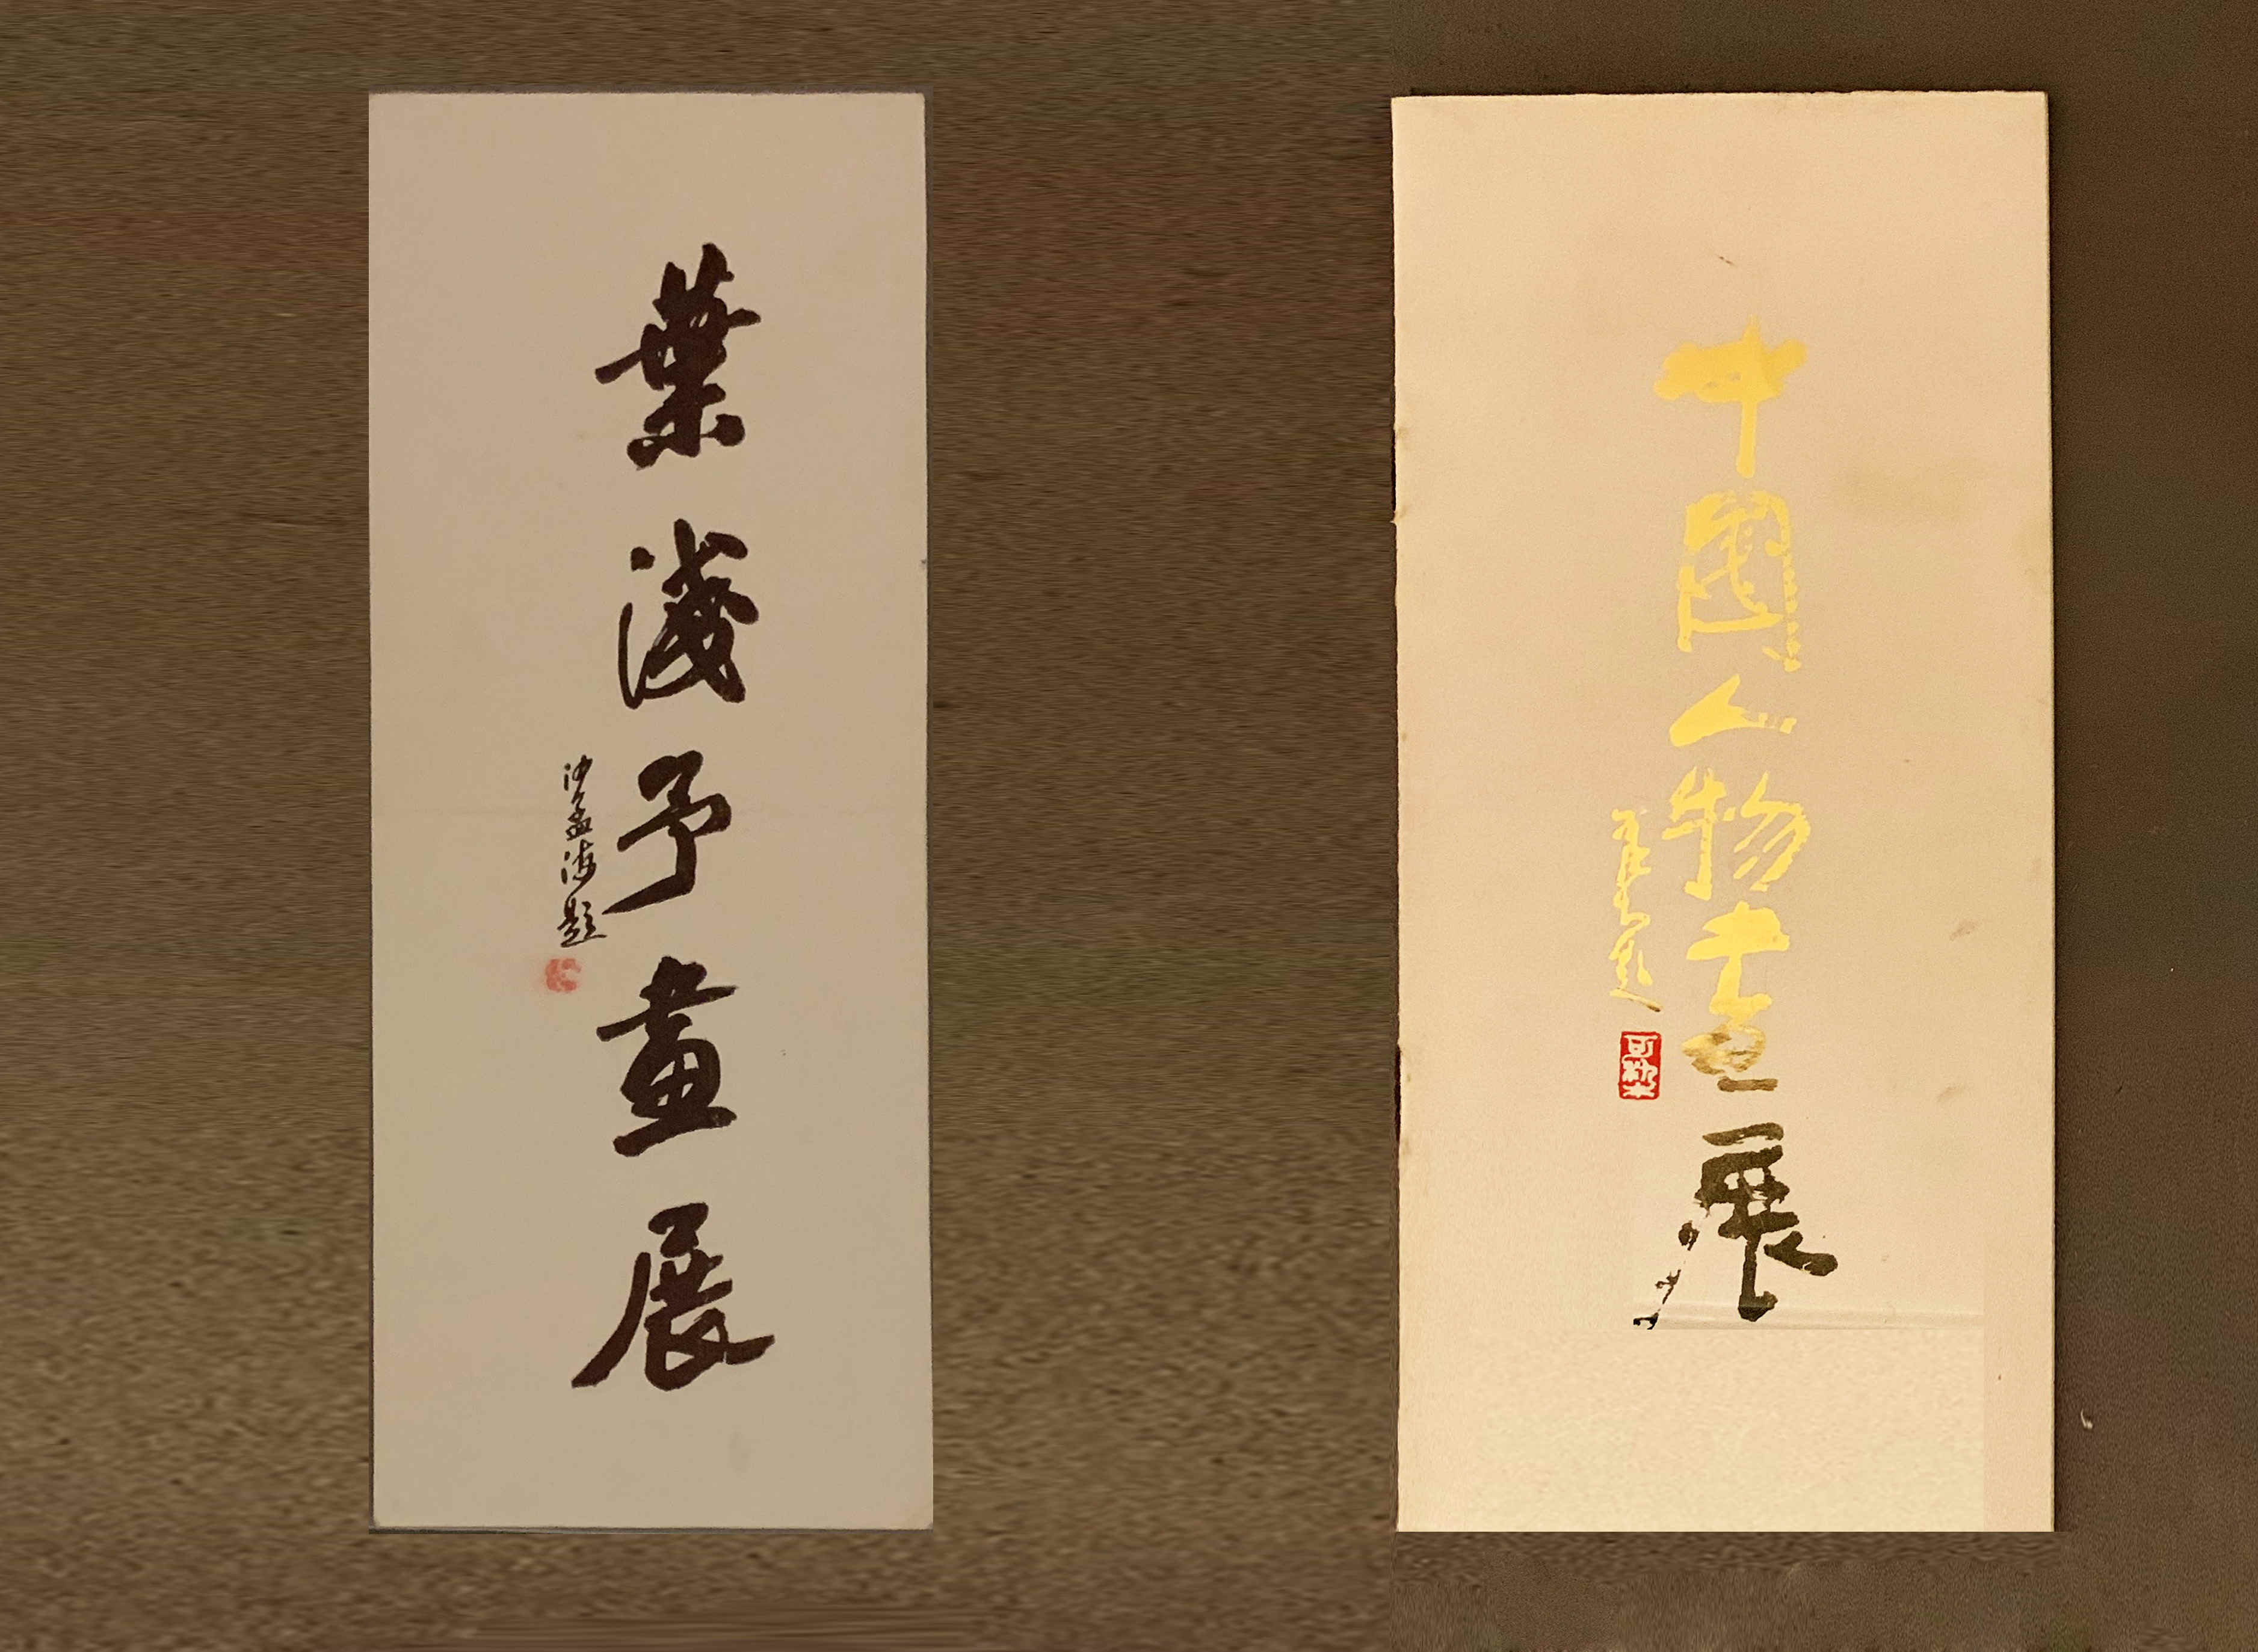 葉淺予畫展
沙孟海題
中國人物畫展
可染